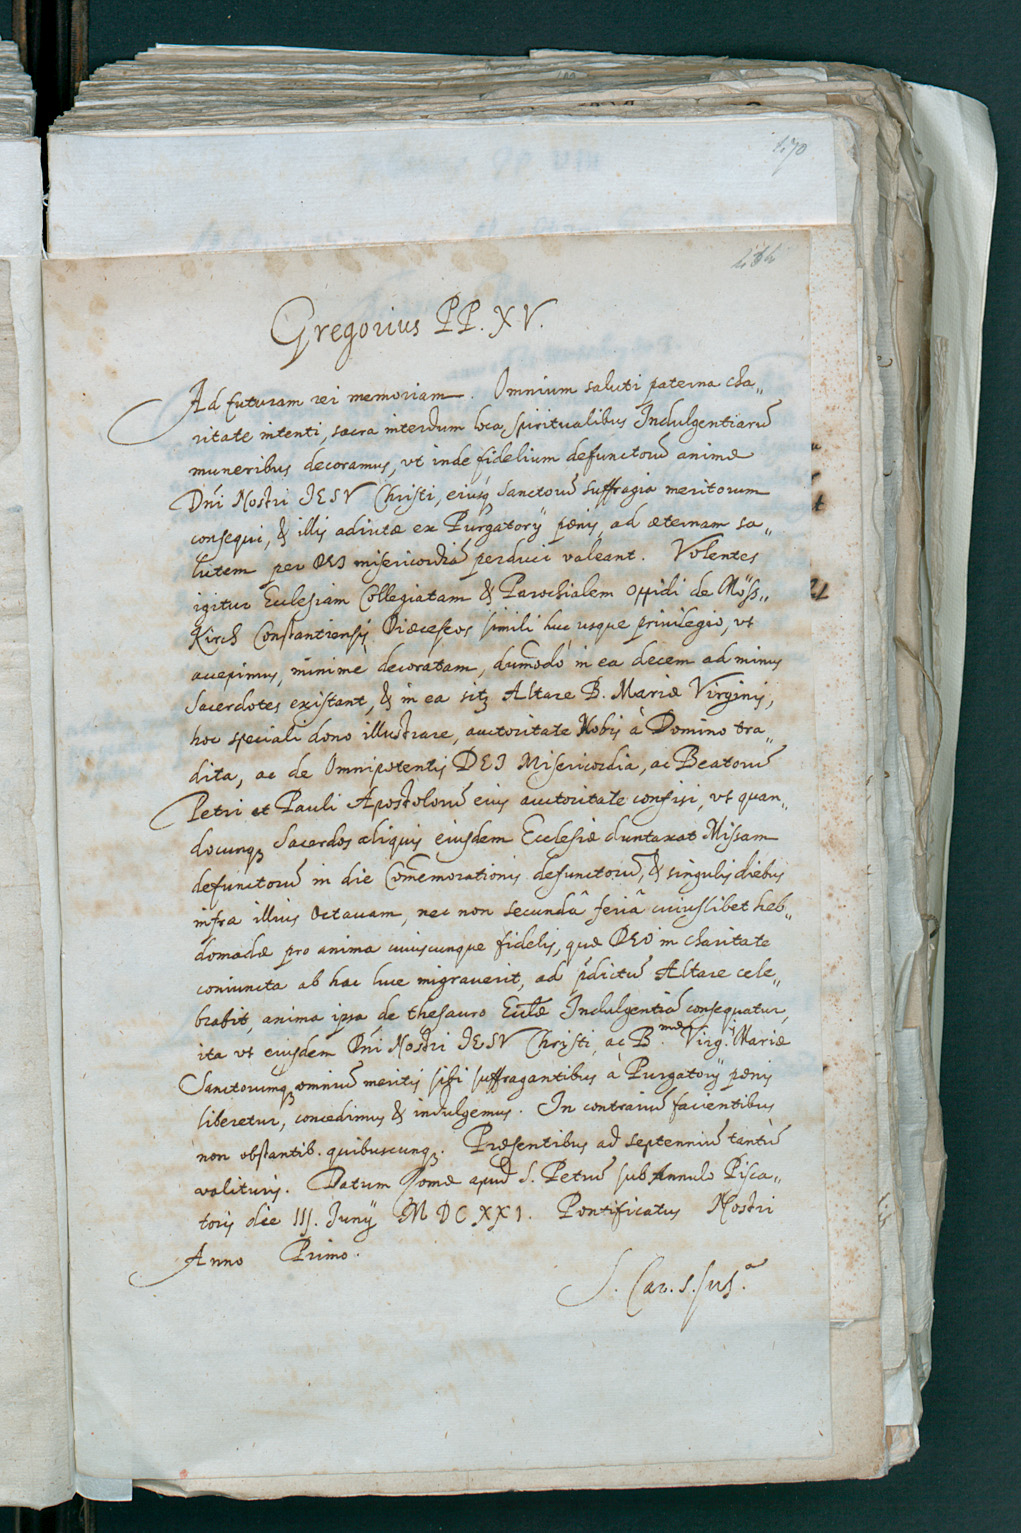 170
Gregorius PP. XV.
Ad futuram rei memoriam. Omnium saluti paterna cha„
ritate intenti, sacra interdum loca, spiritualibus Indulgentiarū
muneribus decoramus, vt inde fidelium defunctorū animæ
Dn̄i Nostri IESV Christi, eiusq̨ sanctorū suffragia meritorum
consequi, & illis adiutæ ex Purgatorÿ pœnis, ad æternam sa„
lutem per DEI misericordiā perduci valeant. Volentes
igitur Ecclesiam Collegiatam & Parochialem Oppidi de Möss„
Kirch Constantiensis Diæceseos simili huc usque priuilegio, vt
accepimus, minimè decoratam, dum̄odò in ea decem ad minus
Sacerdotes existant, & in ea sitq̨ Altare B. Mariæ Virginis,
hoc speciali dono illustrare, auctoritate Nobis à Domino tra„
dita, ac de Omnipotentis DEI Misericordia, ac Beatorū
Petri et Pauli Apostolorū eius auctoritate confisi, vt quan„
docunq̨ Sacerdos aliquis eiusdem Ecclesiæ duntaxat Missam
defunctorū in die Com̄emorationis defunctorū, & singulis diebus
infra illius Octauam, nec non secundâ feriâ cuiuslibet heb„
domadæ pro anima cuiuscunque fidelis, quæ DEO in charitate
coniuncta ab hac luce migrauerit, ad p̄dictū Altare cele„
brabit, anima ipsa de thesauro Eccl̄æ Indulgentiā consequatur,
ita vt eiusdem Dn̄i Nostri IESV Christi, ac B.mæ Virg.i Mariæ
Sanctorumq̨ omniū meritis sibi suffragantibus à Purgatorÿ pœnis
liberetur, concedimus & indulgemus. In contrariū facientibus
non obstantib. quibuscunq̨. Præsentibus ad septenniū tantū
valituris. Datum Romæ apud S. Petrū sub Annulo Pisca„
toris die III. Junÿ MDCXXI. Pontificatus Nostri
Anno Primo.
S. Car. S. Sus.ᵃ